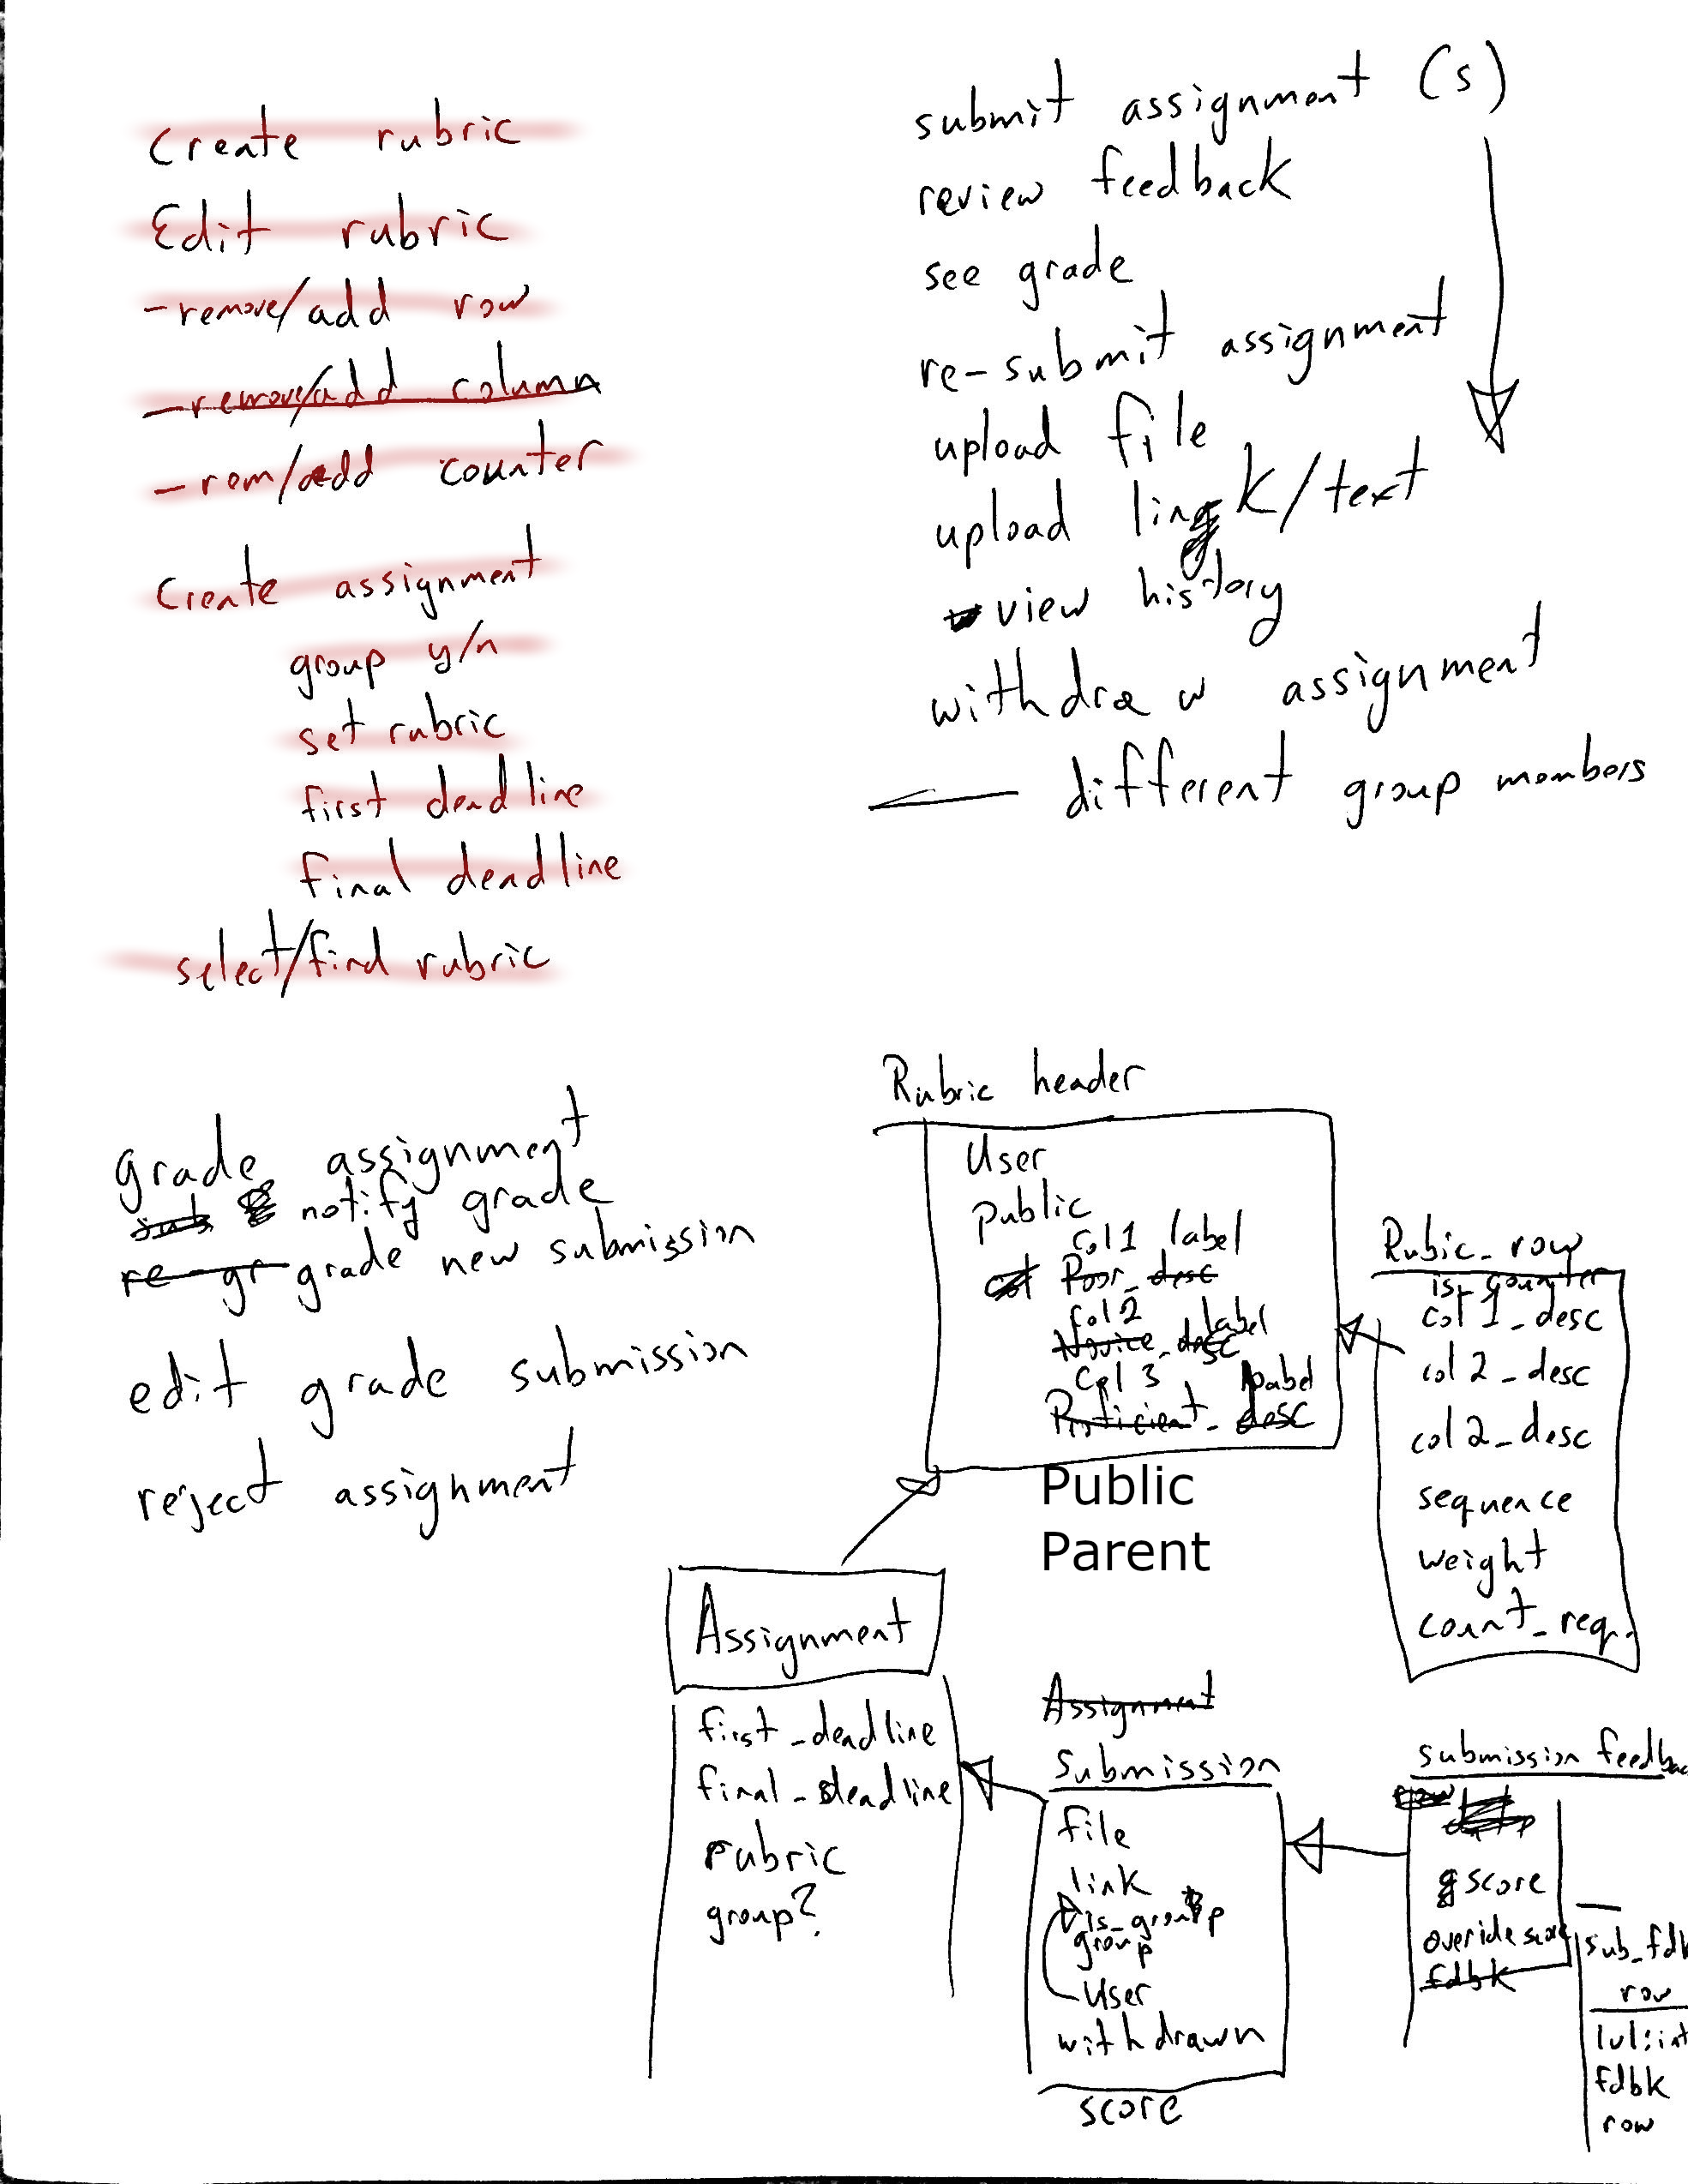 Create rubric
Edit rubric
-remove/add row
-remove/add column
-rem/add counter
Create assignment
group y/n
set rubric
first deadline
final deadline
select/find rubric
submit assignment (s)
review feedback
see grade
re-submit assignment
upload file
upload link/text
view history
withdraw assignment
different group members
grade assignment
sub notify grade
re-gr grade new submission
edit grade submission
reject assignment
Rubric header
User
Public
col1 label
col Poor_desc
col2 label
Novice_desc
Col 3 label
Proficient_desc
Public
Parent
Rubic_row
is_counter
col1_desc
col2_desc
col2_desc
sequence
weight
count_req.
Assignment
first_deadline
final_deadline
rubric
group?
Assignment
Submission
file
link
is_group
group
User
withdrawn
score
submission feedbac
score
override score
fdbk
sub_fdb
row
lvl:int
fdbk
row